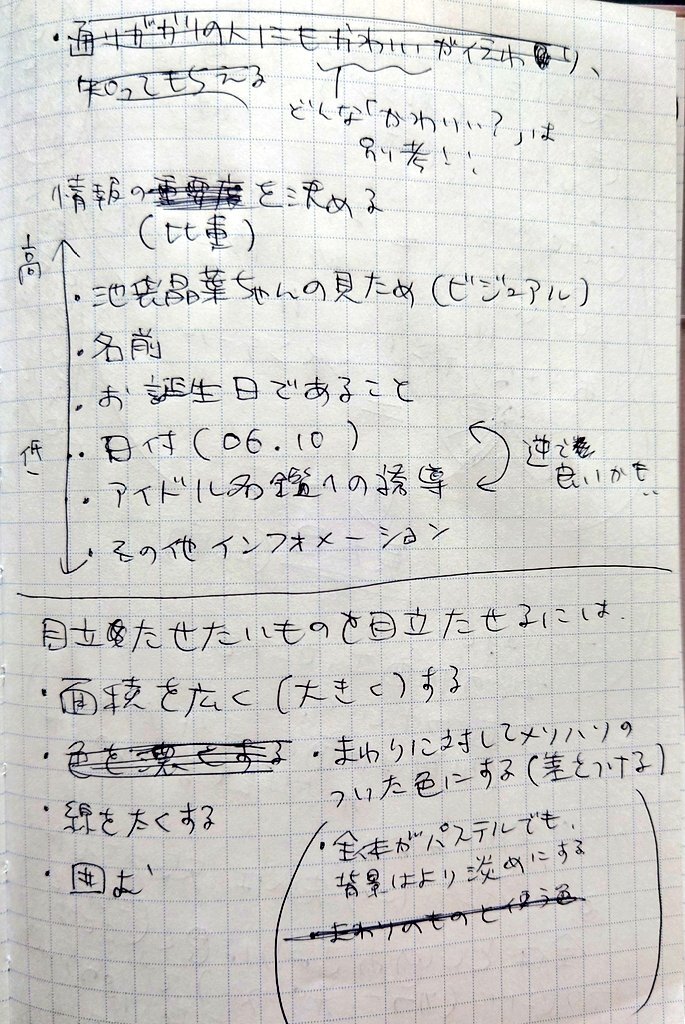 ・通りがかりの人にもかわいいが伝わり、
知ってもらえる
どんな「かわいい?」は
別考!!
情報の重要度を決める
(比重)
高
・池袋晶葉ちゃんの見ため(ビジュアル)
・名前
・お誕生日であること
・日付(06.10)
逆で
良いかも
低
・アイドル名鑑への誘導
・その他インフォメーション
目立たせたいものを目立たせるには
・面積を広く(大きく)する
・色を濃くする
・まわりに対してメリハリの
ついた色にする(差をつける)
・線を太くする
・全体がパステルでも、
背景はより淡めにする
・囲む
・まわりのものと使う色